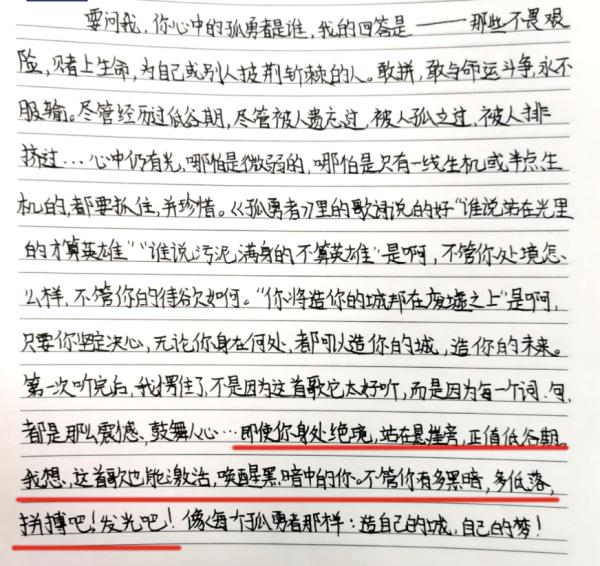 要问我，你心中的孤勇者是谁，我的回答是——那些不畏艰
险，赌上生命，为自己或别人披荆斩棘的人。敢拼，敢与命运斗争，永不
服输。尽管经历过低谷期，尽管被人遗忘过，被人孤立过，被人排
挤过…心中仍有光，哪怕是微弱的，哪怕是只有一线生机或半点生
机的，都要抓住，并珍惜。《孤勇者》里的歌词说的好“谁说站在光里
的才算英雄”“谁说污泥满身的不算英雄”是啊，不管你处境怎
么样，不管你的待欲如何。“你将造你的城邦在废墟之上”是啊，
只要你坚定决心，无论你身在何处，都可以造你的城，造你的未来。
第一次听完后，我愣住了，不是因为这首歌它太好听，而是因为每一个词、句，
都是那么震撼、鼓舞人心…即使你身处绝境，站在悬崖旁，正值低谷期。
我想，这首歌也能激活，唤醒黑暗中的你。不管你有多黑暗，多低落，
拼搏吧！发光吧！像每个孤勇者那样：造自己的城，自己的梦！